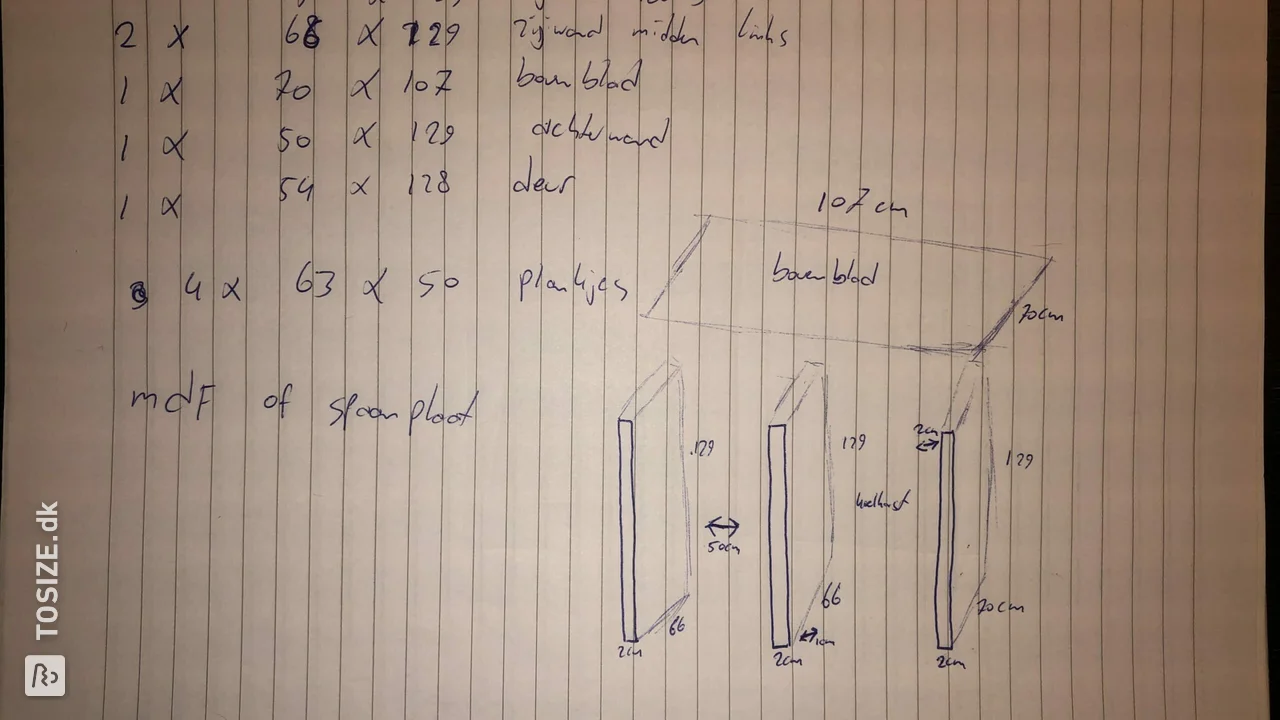 2 x 66 x 129 zijwand midden links
1 x 70 x 107 bovenblad
1 x 50 x 129 achterwand
1 x 54 x 128 deur
4 x 63 x 50 plankjes
mdF of spaanplaat
107 cm
bovenblad
70cm
129
129
2cm
129
koelkast
50cm
66
66
1cm
70cm
2cm
2cm
2cm
TOSIZE.dk